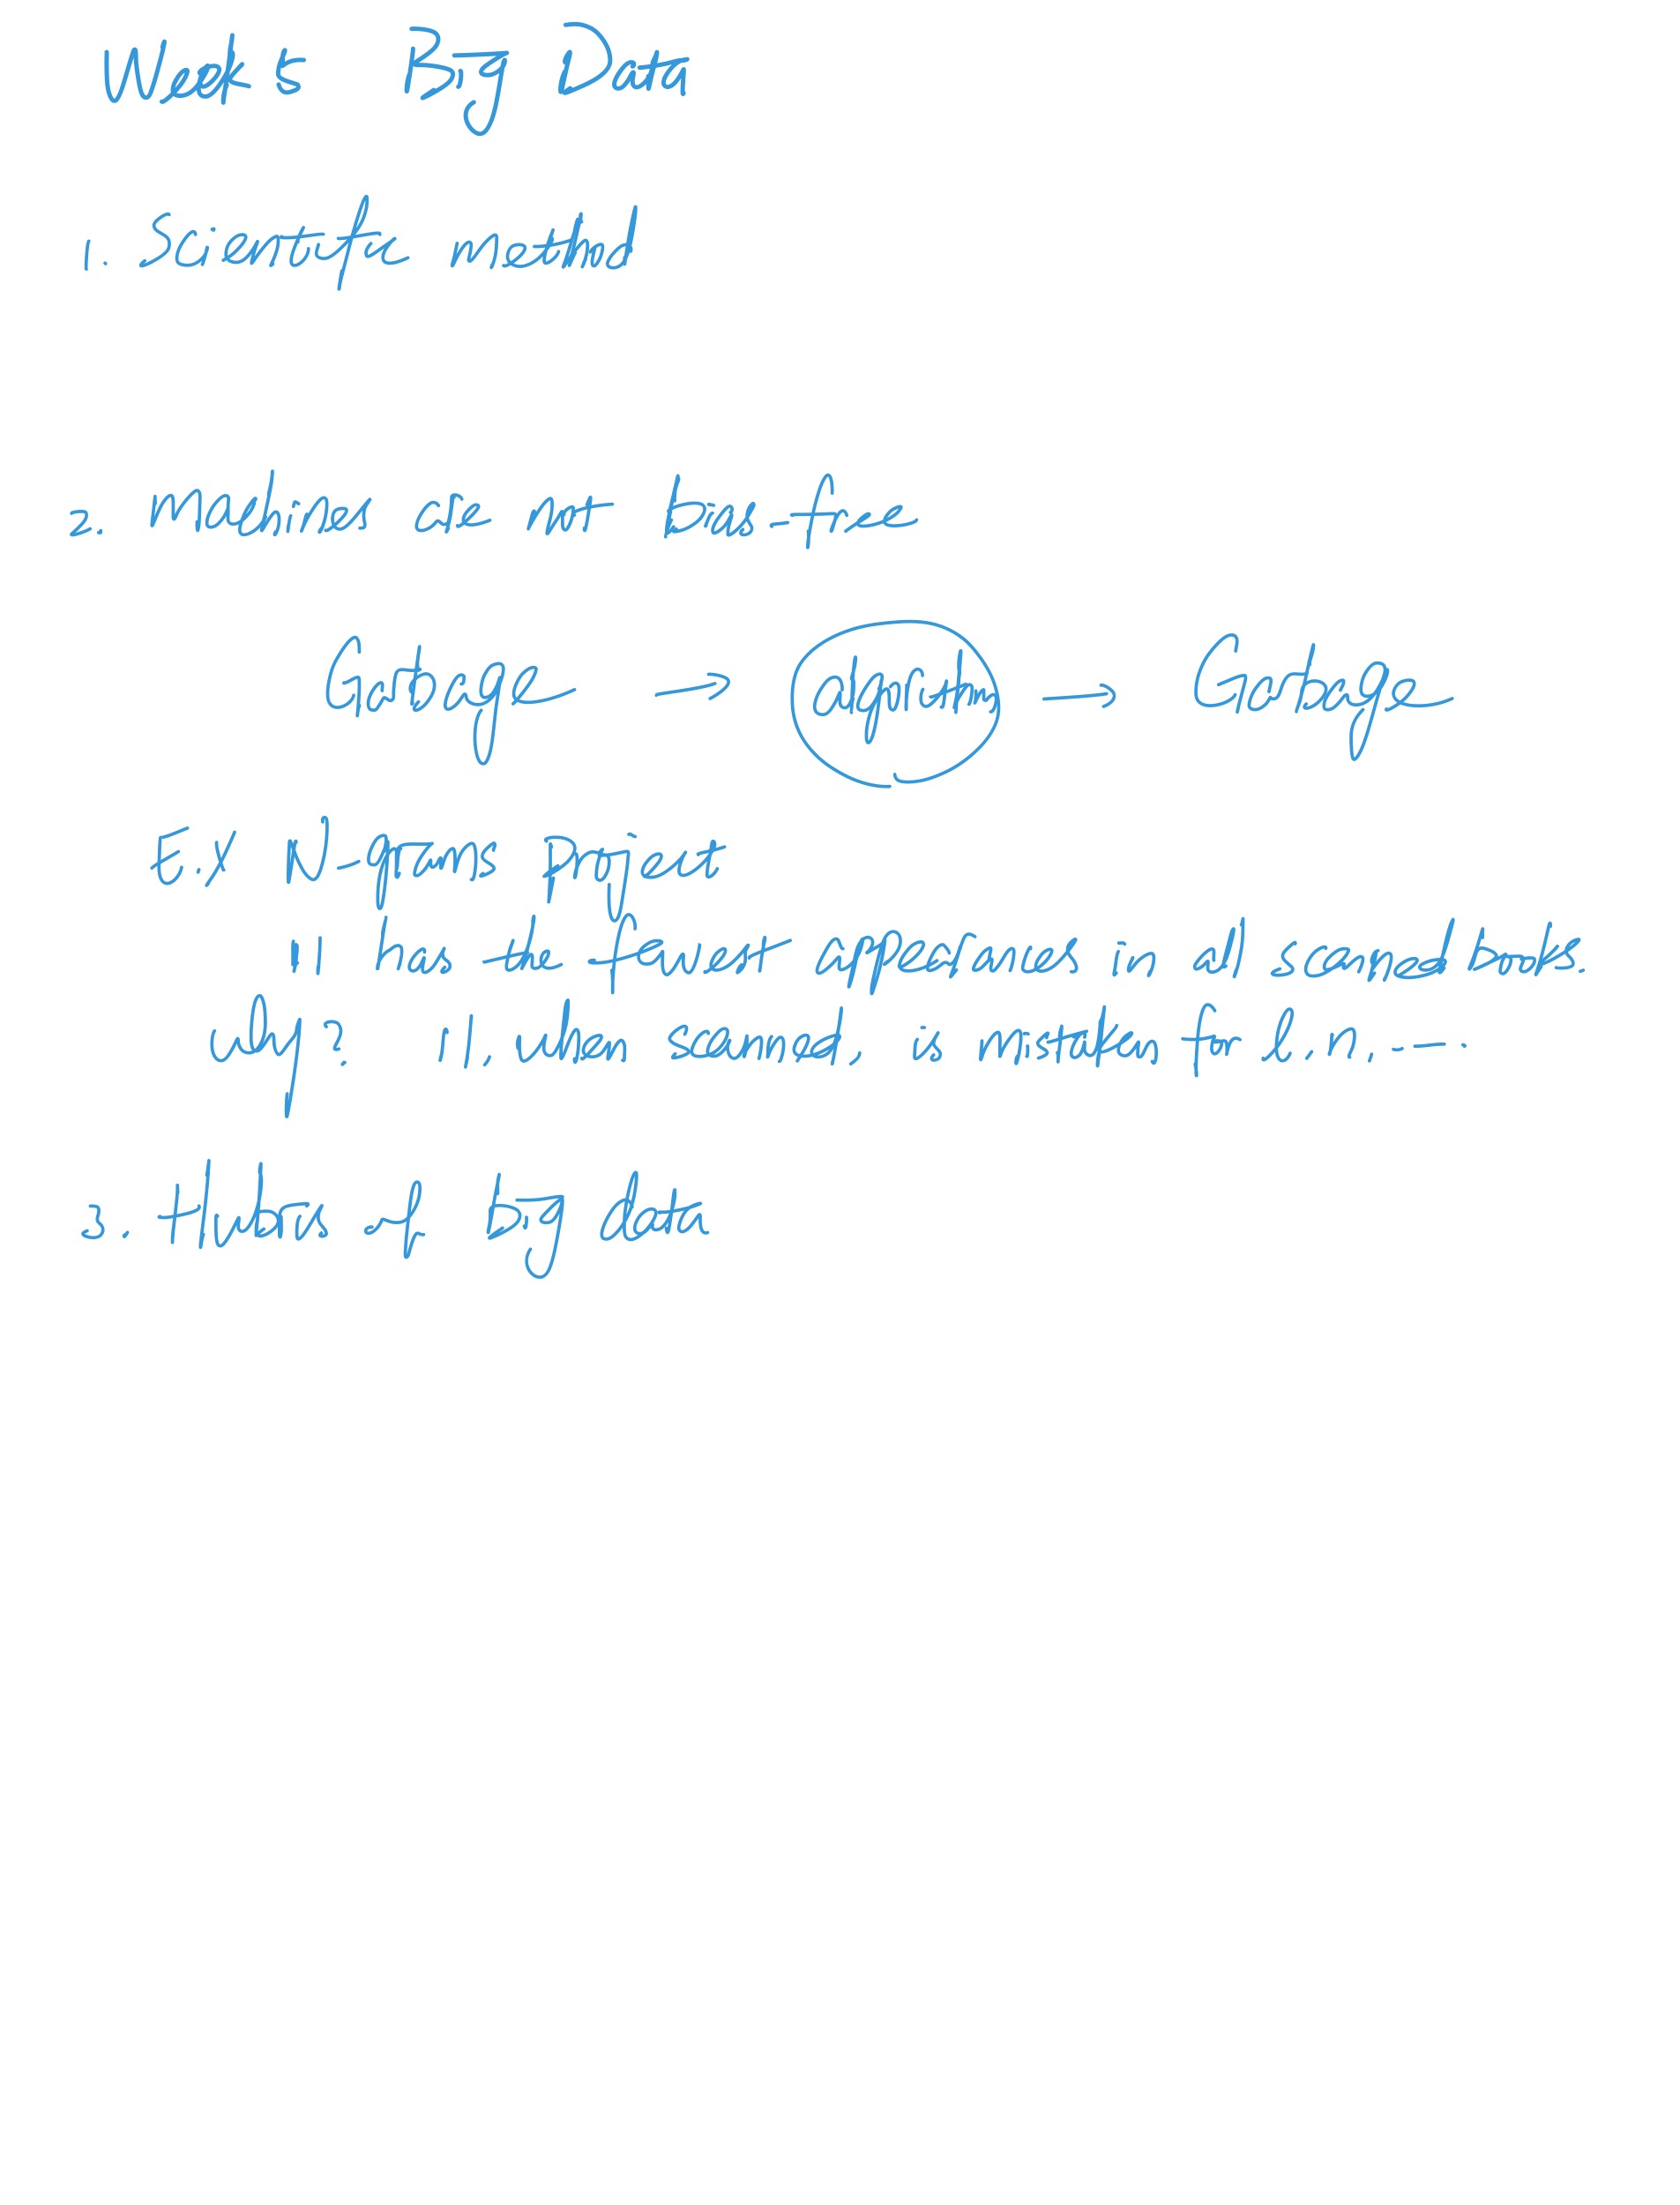 Week 5 Big Data
1. Scientific method
2. Machines are not bias-free
Garbage → algorithm → Garbage
E.X N-grams project
11 has the fewest appearances in all scanned books.
Why? 11, when scanned, is mistaken for l. n. ---.
3. Hubris of big data